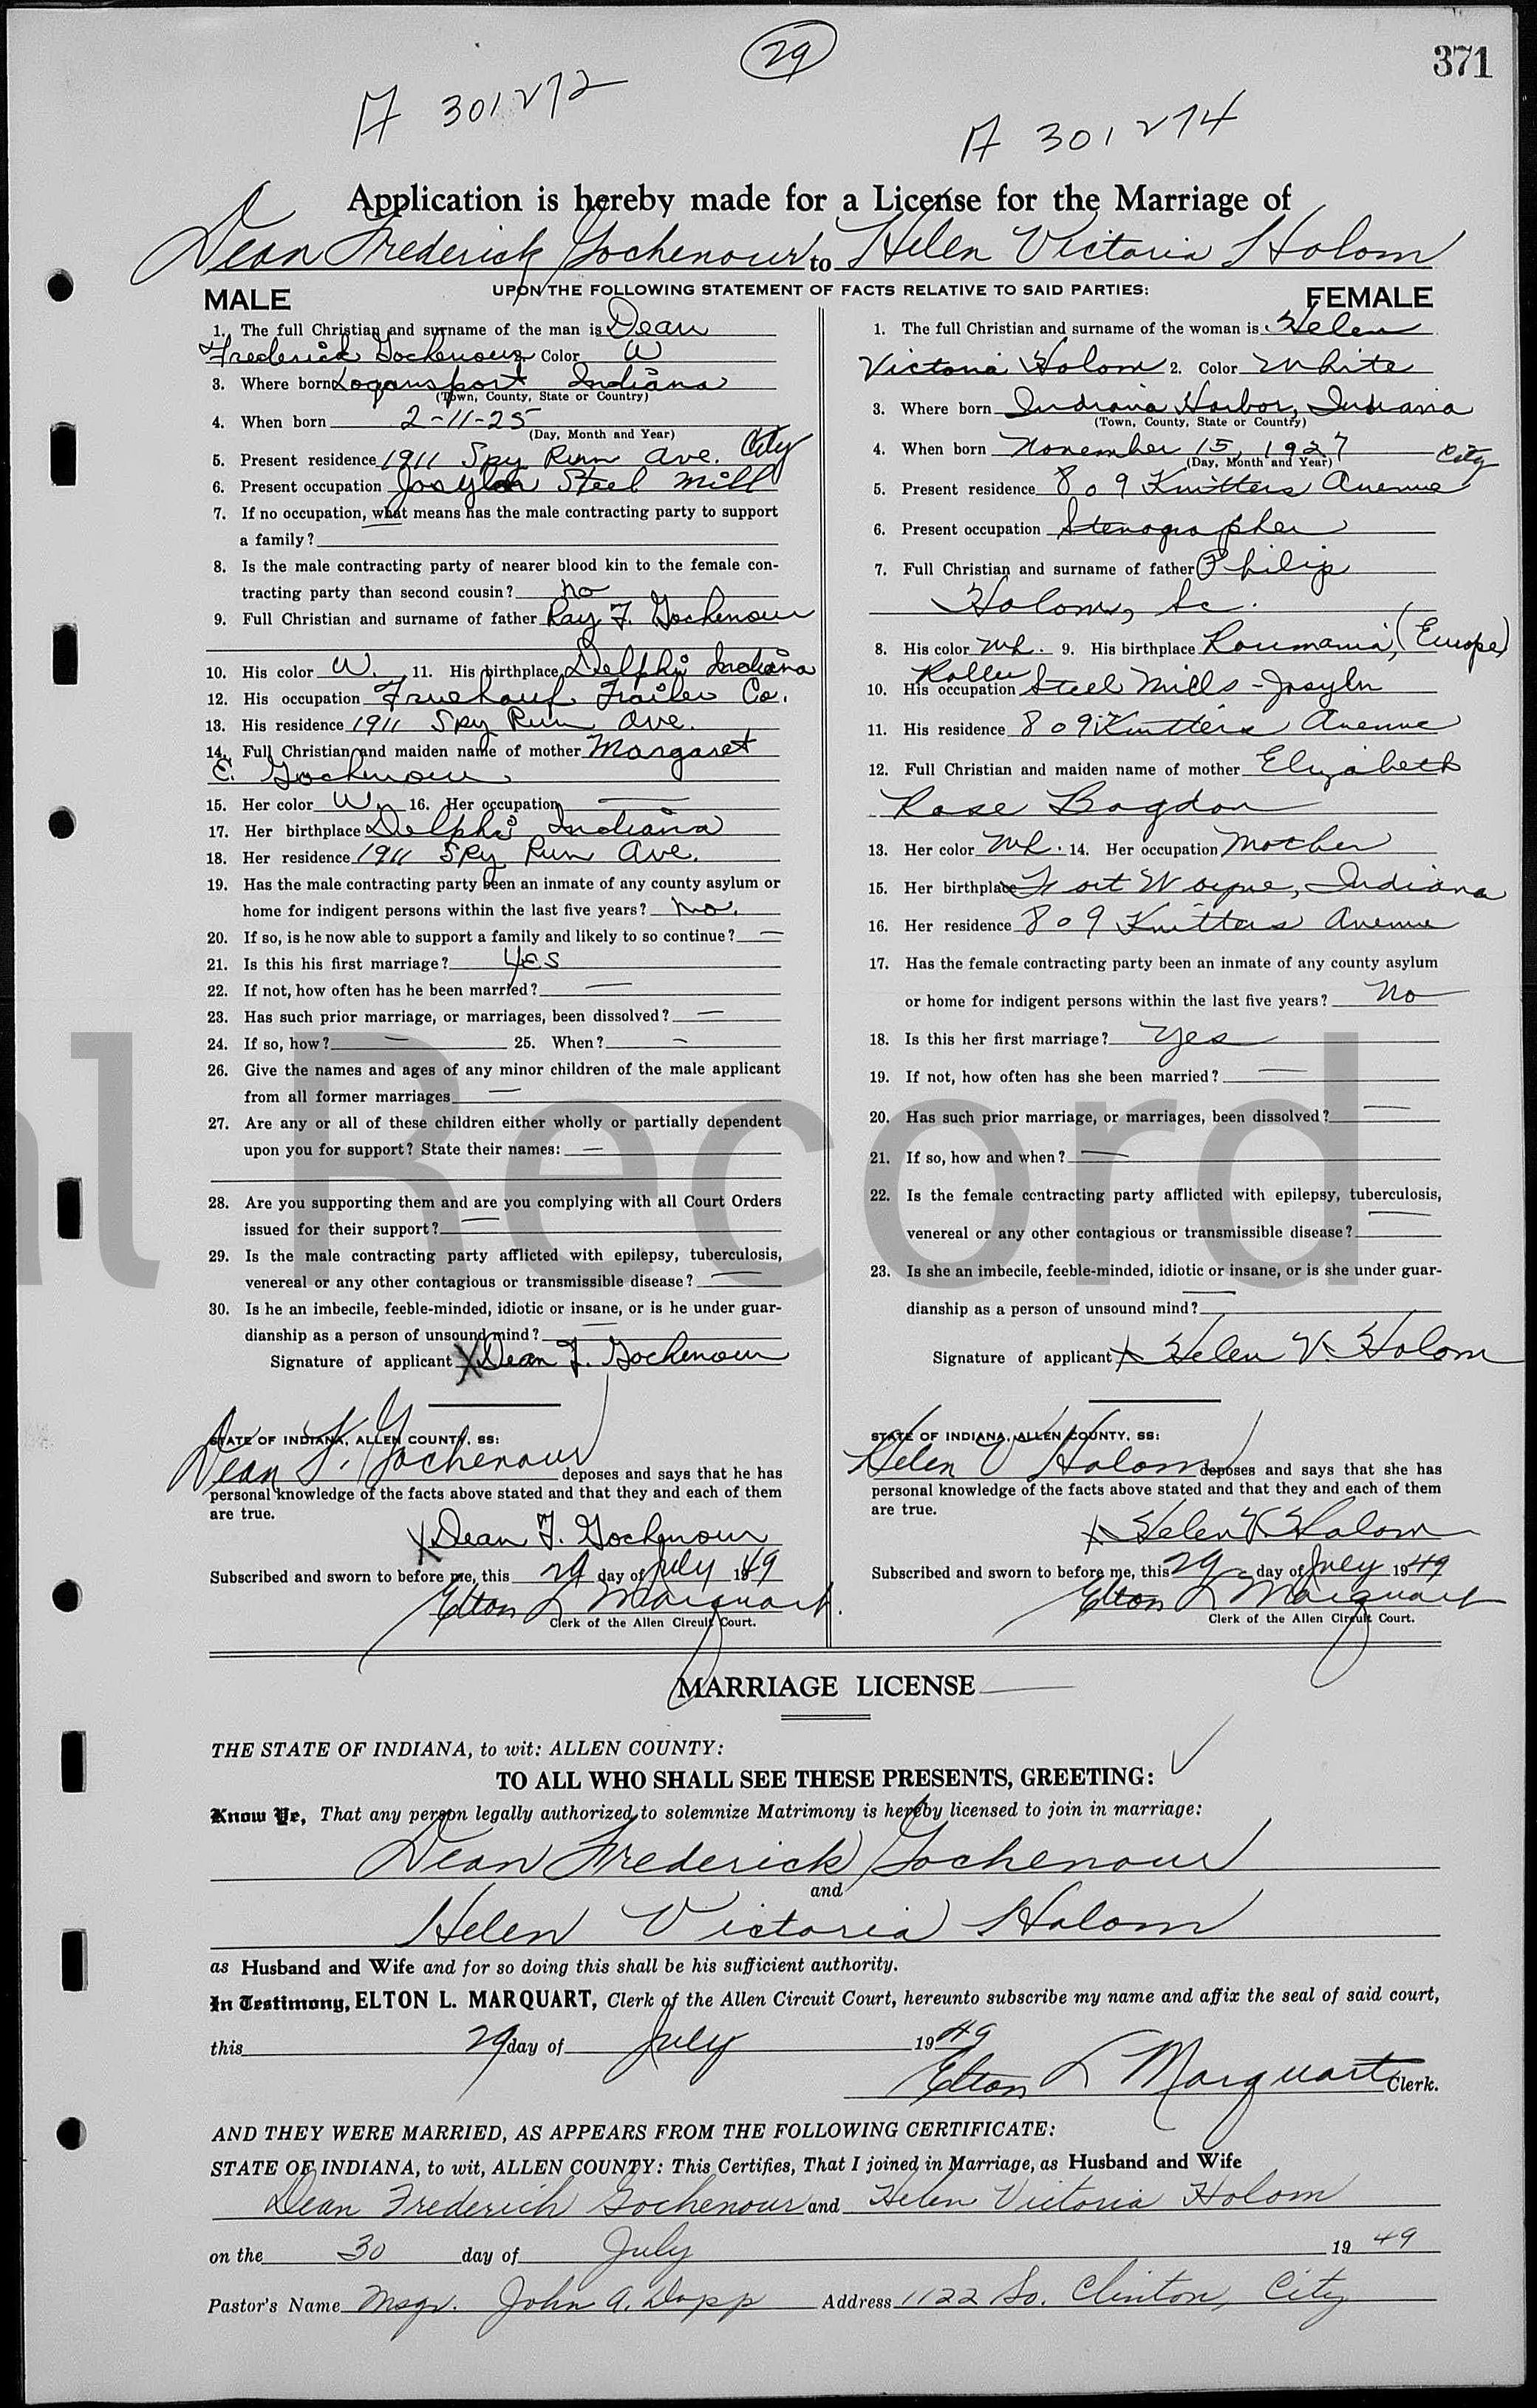 29
371
A 301272
A 301274
Application is hereby made for a License for the Marriage of
Dean Frederick Gochenour to Helen Victoria Holom
UPON THE FOLLOWING STATEMENT OF FACTS RELATIVE TO SAID PARTIES:
MALE
1. The full Christian and surname of the man is Dean
Frederick Gochenour 2. Color W
3. Where born Logansport Indiana
(Town, County, State or Country)
4. When born 2-11-25
(Day, Month and Year)
5. Present residence 1911 Spy Run Ave. City
6. Present occupation Joslyn Steel Mill
7. If no occupation, what means has the male contracting party to support
a family?
8. Is the male contracting party of nearer blood kin to the female con-
tracting party than second cousin? no
9. Full Christian and surname of father Ray F. Gochenour
10. His color W. 11. His birthplace Delphi Indiana
12. His occupation Fruehauf Trailer Co.
13. His residence 1911 Spy Run Ave.
14. Full Christian and maiden name of mother Margaret
E. Gochenour
15. Her color W. 16. Her occupation —
17. Her birthplace Delphi Indiana
18. Her residence 1911 Spy Run Ave.
19. Has the male contracting party been an inmate of any county asylum or
home for indigent persons within the last five years? no.
20. If so, is he now able to support a family and likely to so continue? —
21. Is this his first marriage? Yes
22. If not, how often has he been married? —
23. Has such prior marriage, or marriages, been dissolved? —
24. If so, how? — 25. When? —
26. Give the names and ages of any minor children of the male applicant
from all former marriages —
27. Are any or all of these children either wholly or partially dependent
upon you for support? State their names: —
28. Are you supporting them and are you complying with all Court Orders
issued for their support? —
29. Is the male contracting party afflicted with epilepsy, tuberculosis,
venereal or any other contagious or transmissible disease? —
30. Is he an imbecile, feeble-minded, idiotic or insane, or is he under guar-
dianship as a person of unsound mind? —
Signature of applicant X Dean F. Gochenour
STATE OF INDIANA, ALLEN COUNTY, SS:
Dean F. Gochenour deposes and says that he has
personal knowledge of the facts above stated and that they and each of them
are true.
X Dean F. Gochenour
Subscribed and sworn to before me, this 29 day of July 1949
Elton L Marquart
Clerk of the Allen Circuit Court.
FEMALE
1. The full Christian and surname of the woman is Helen
Victoria Holom 2. Color White
3. Where born Indiana Harbor, Indiana
(Town, County, State or Country)
4. When born November 15, 1927
(Day, Month and Year)
City
5. Present residence 809 Knitters Avenue
6. Present occupation Stenographer
7. Full Christian and surname of father Philip
Holom, Sr.
8. His color Wh. 9. His birthplace Roumania, (Europe)
Roller
10. His occupation Steel Mills - Josyln
11. His residence 809 Knitters Avenue
12. Full Christian and maiden name of mother Elizabeth
Rose Bogdon
13. Her color Wh. 14. Her occupation Mother
15. Her birthplace Fort Wayne, Indiana
16. Her residence 809 Knitters Avenue
17. Has the female contracting party been an inmate of any county asylum
or home for indigent persons within the last five years? No
18. Is this her first marriage? Yes
19. If not, how often has she been married? —
20. Has such prior marriage, or marriages, been dissolved? —
21. If so, how and when? —
22. Is the female contracting party afflicted with epilepsy, tuberculosis,
venereal or any other contagious or transmissible disease? —
23. Is she an imbecile, feeble-minded, idiotic or insane, or is she under guar-
dianship as a person of unsound mind? —
Signature of applicant X Helen V. Holom
STATE OF INDIANA, ALLEN COUNTY, SS:
Helen V Holom deposes and says that she has
personal knowledge of the facts above stated and that they and each of them
are true.
X Helen V. Holom
Subscribed and sworn to before me, this 29 day of July 1949
Elton L Marquart
Clerk of the Allen Circuit Court.
l Record
MARRIAGE LICENSE
THE STATE OF INDIANA, to wit: ALLEN COUNTY:
TO ALL WHO SHALL SEE THESE PRESENTS, GREETING:
Know Ye, That any person legally authorized to solemnize Matrimony is hereby licensed to join in marriage:
Dean Frederick Gochenour
and
Helen Victoria Holom
as Husband and Wife and for so doing this shall be his sufficient authority.
In Testimony, ELTON L. MARQUART, Clerk of the Allen Circuit Court, hereunto subscribe my name and affix the seal of said court,
this 29 day of July 1949
Elton L Marquart Clerk.
AND THEY WERE MARRIED, AS APPEARS FROM THE FOLLOWING CERTIFICATE:
STATE OF INDIANA, to wit, ALLEN COUNTY: This Certifies, That I joined in Marriage, as Husband and Wife
Dean Frederich Gochenour and Helen Victoria Holom
on the 30 day of July 1949
Pastor's Name Msgr. John A. Dapp Address 1122 So. Clinton, City